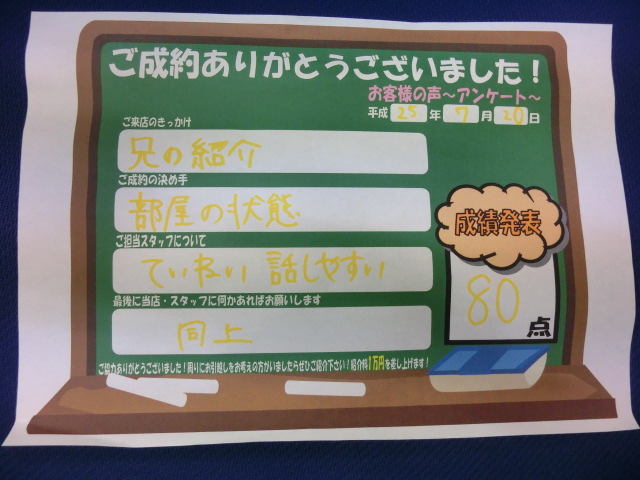 ご成約ありがとうございました！
お客様の声～アンケート～
平成 25 年 7 月 20 日
ご来店のきっかけ
兄の紹介
ご成約の決め手
部屋の状態
ご担当スタッフについて
ていねい 話しやすい
最後に当店・スタッフに何かあればお願いします
同上
成績発表
80点
ご協力ありがとうございました！周りにお引越しをお考えの方がいましたらぜひご紹介下さい！紹介料1万円を差し上げます！